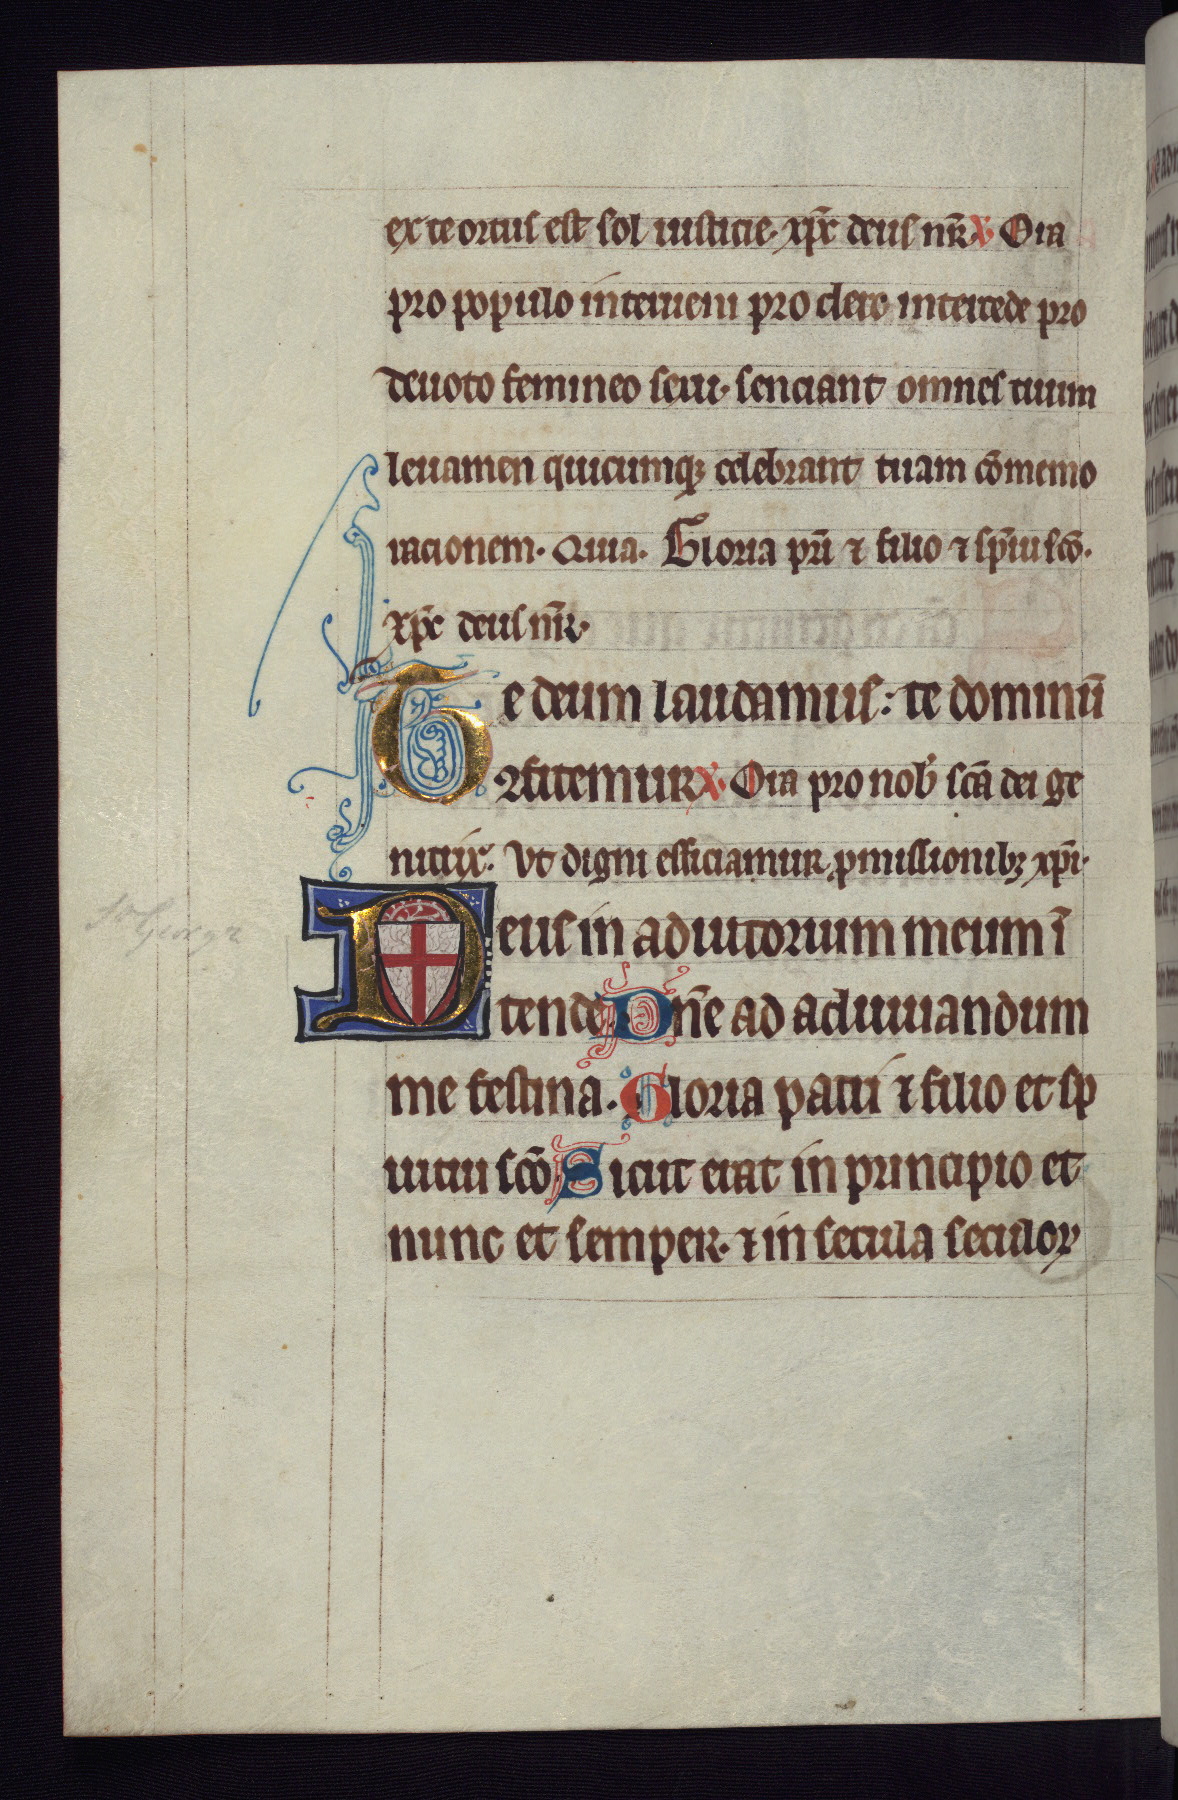 ex te ortus est sol iusticie. xp̄c deus nr̄ ℣. Ora
pro populo interueni pro clero intercede pro
deuoto femineo sexu. senciant omnes tuum
leuamen quicumqꝫ celebrant tuam cōmemo
racionem. Quia. Gloria pr̄i ⁊ filio ⁊ sp̄iui sc̄o.
xp̄c deus nr̄.
Te deum laudamus: te dominū
ꝯfitemur ℣. Ora pro nob̄ sc̄a dei ge
nitrix. Vt digni efficiamur ꝓmissionibꝫ xp̄i.
Deus in adiutorium meum ī
St George
tende Dn̄e ad adiuuandum
me festina. Gloria patri ⁊ filio et sp
iritui sc̄o Sicut erat in principio et
nunc et semper. ⁊ in secula seculoꝝ